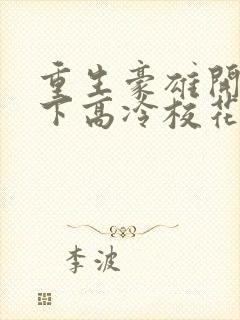 重生豪雄開
下高冷校花
李波